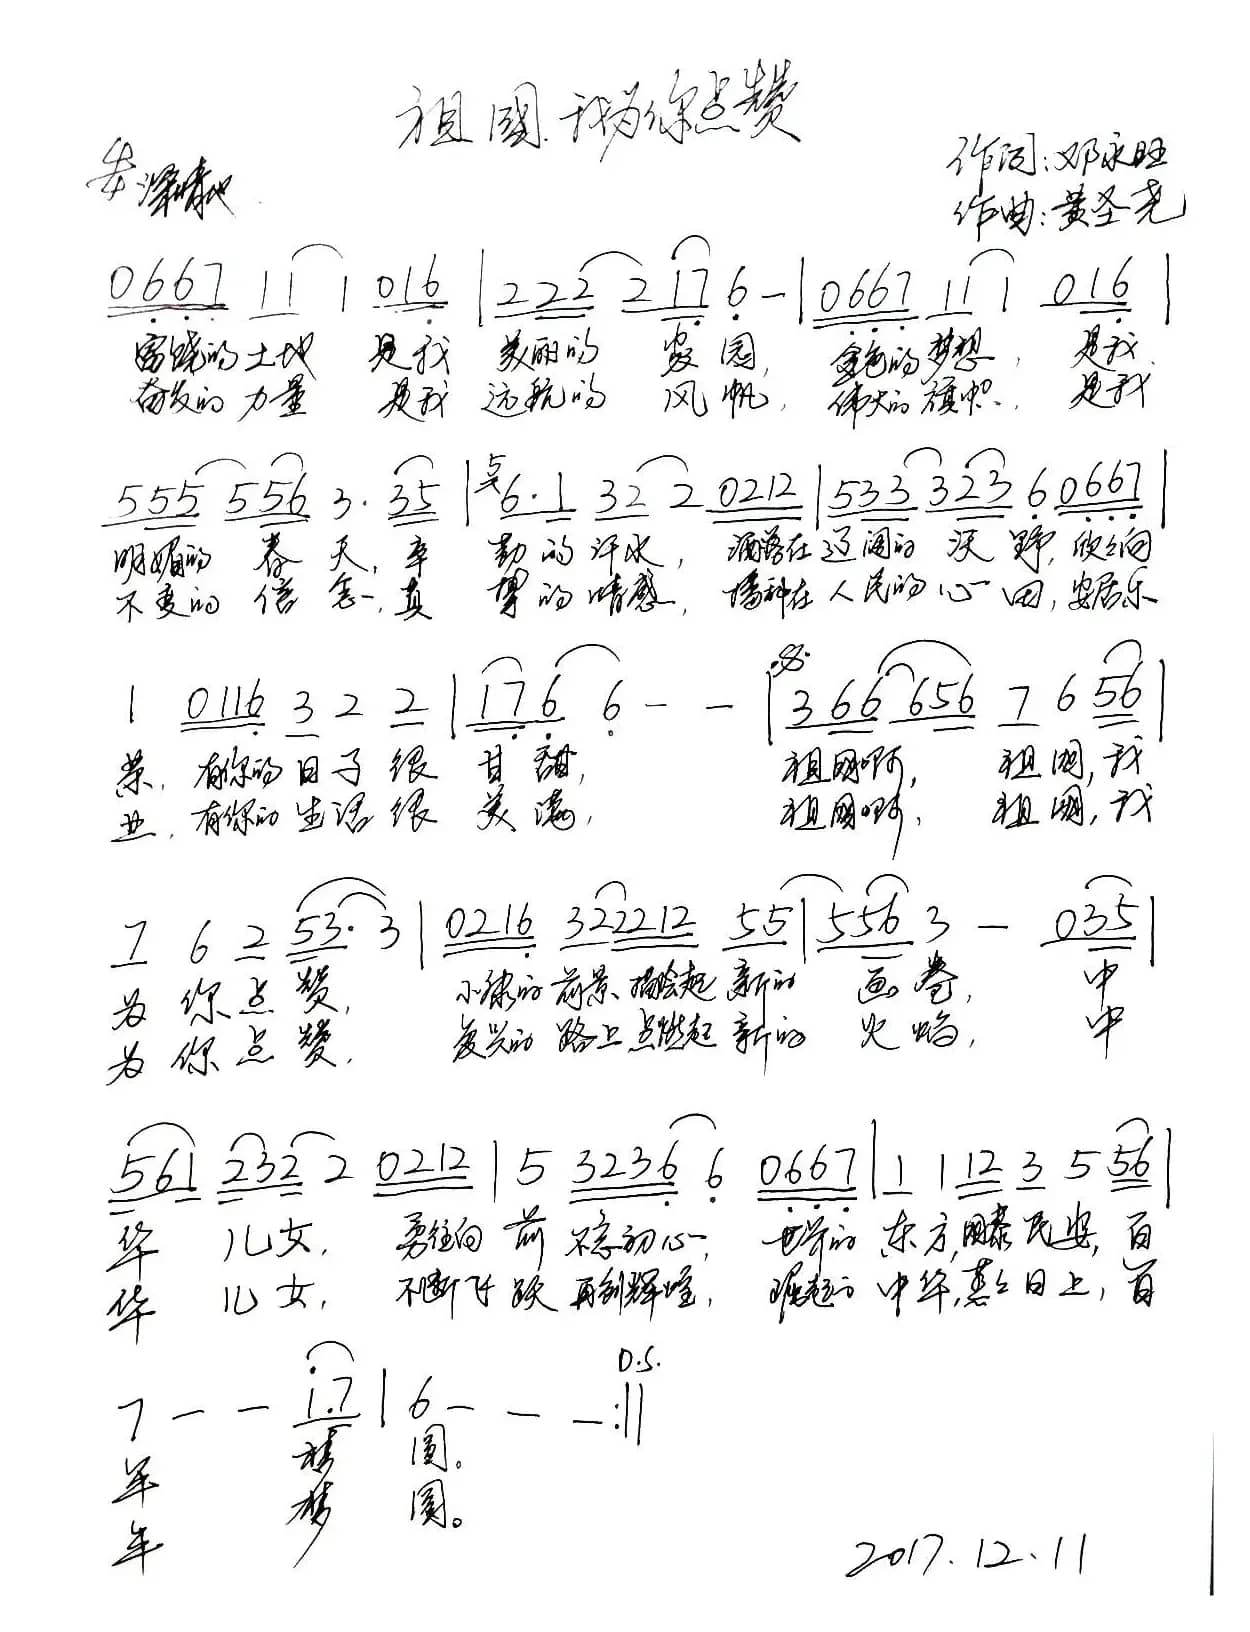 祖國,我为你点赞
深情地
作词:邓永旺
作曲:黄圣尧
0667 11 1 016 | 222 2 17 6 - | 0667 11 1 016 |
富饶的土地 是我 美丽的 家园, 金色的梦想, 是我
奋发的力量 是我 远航的 风帆, 伟大的旗帜, 是我
555 556 3· 35 | 6·1 32 2 0212 | 533 323 6 0667 |
明媚的 春天, 辛 勤的汗水, 洒落在辽阔的 沃野, 欣欣向
不变的 信念, 真 挚的情感, 播种在人民的心田, 安居乐
1 0116 3 2 2 | 176 6 - - | 366 656 7 6 56 |
荣, 有你的日子很 甘甜, 祖国啊, 祖国, 我
业, 有你的生活很 美满, 祖国啊, 祖国, 我
7 6 2 53· 3 | 0216 322212 55 | 556 3 - 035 |
为 你 点 赞, 小康的前景描绘起新的 画卷, 中
为 你 点 赞, 复兴的路上点燃起新的 火焰, 中
561 232 2 0212 | 5 3236 6 0667 | 1 1 12 3 5 56 |
华 儿女, 勇往向 前 不忘初心, 的 东方,国泰民安, 百
华 儿女, 不断飞跃 再创辉煌, 崛起的 中华,蒸蒸日上, 百
7 - - 1·7 | 6 - - - :|| D.S.
年 梦 圆。
年 梦 圆。
2017.12.11